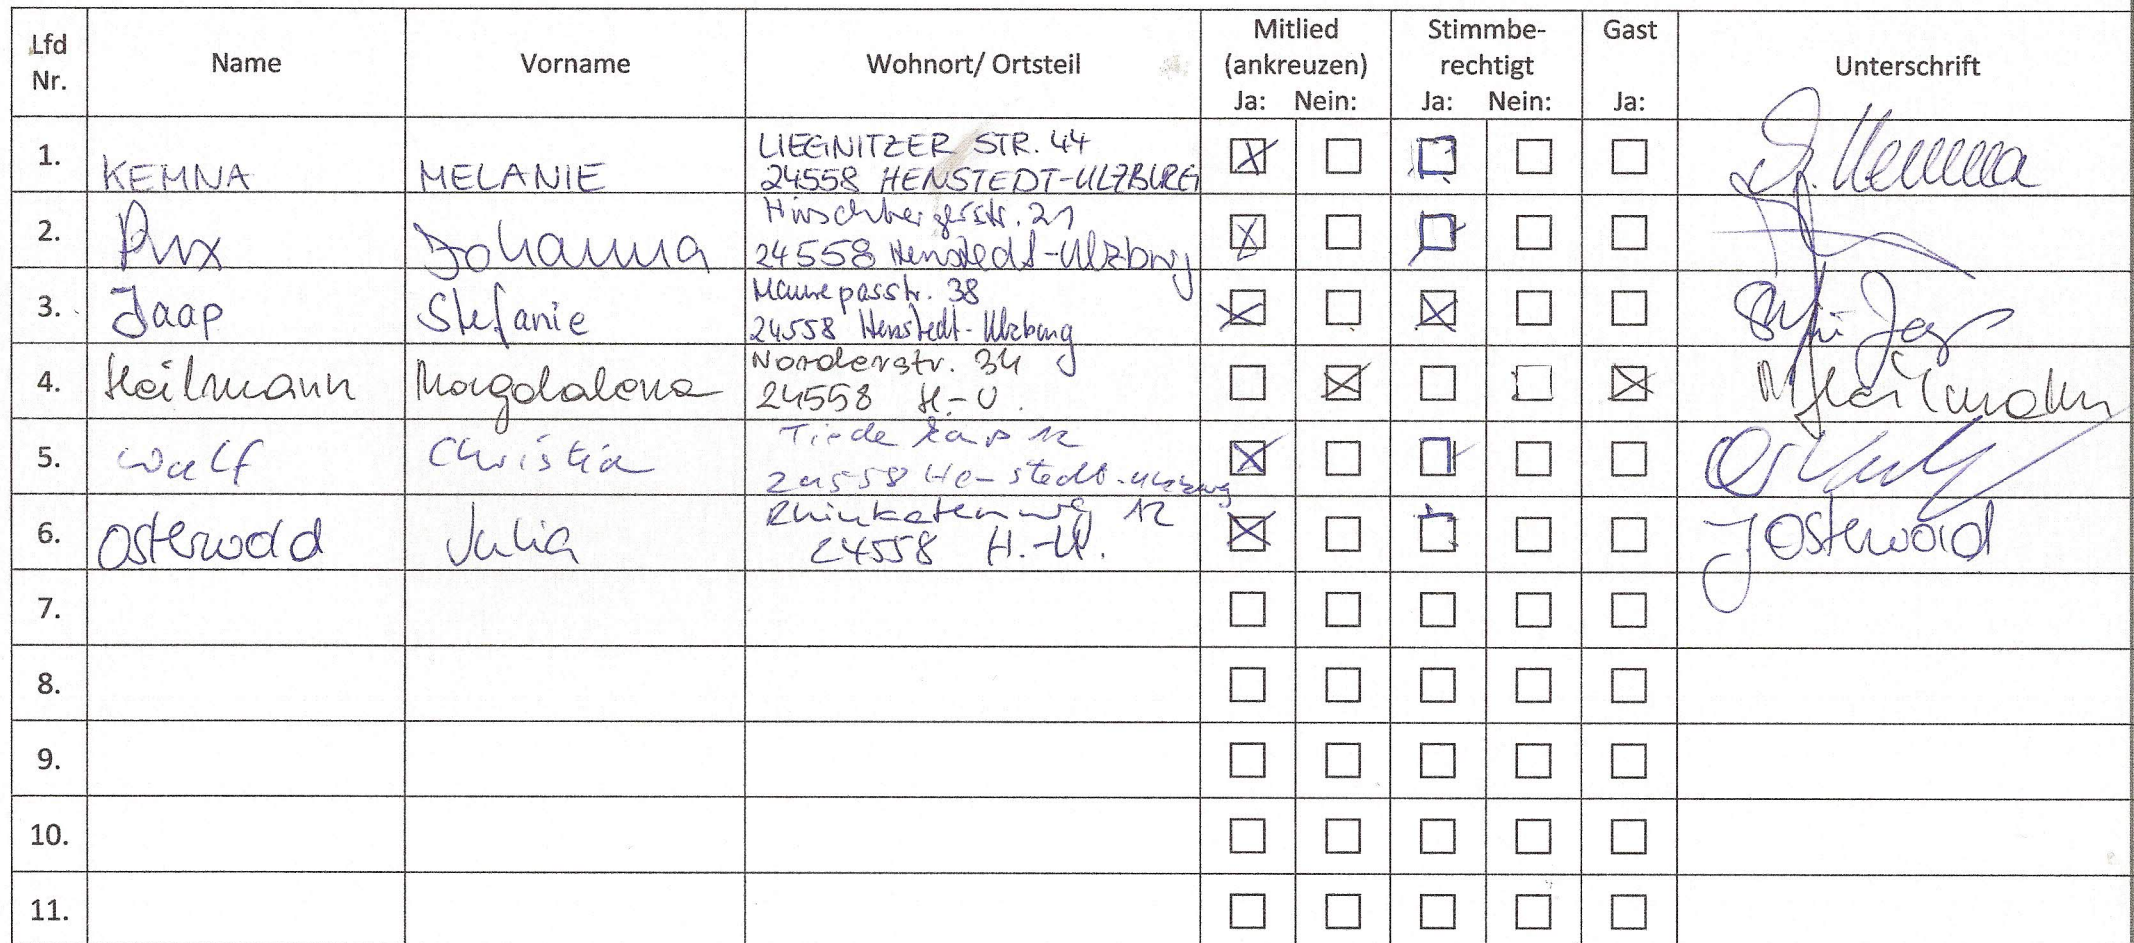 Lfd Nr. Name Vorname Wohnort/ Ortsteil Mitlied (ankreuzen) Ja: Nein: Stimmbe-rechtigt Ja: Nein: Gast Ja: Unterschrift
1. KEMNA MELANIE LIEGNITZER STR. 44
24558 HENSTEDT-ULZBURG
2. Johanna Hirschbergerstr. 21
24558 Henstedt-Ulzburg
3. Jaap Stefanie Maurepasstr. 38
24558 Henstedt-Ulzburg
4. Heilmann Magdalena Norderstr. 34
24558 H.-U. MHeilmann
5. Wulf 12
24558 Henstedt-Ulzburg
6. Osterwold Julia 12
24558 H.-U. J Osterwold
7.
8.
9.
10.
11.